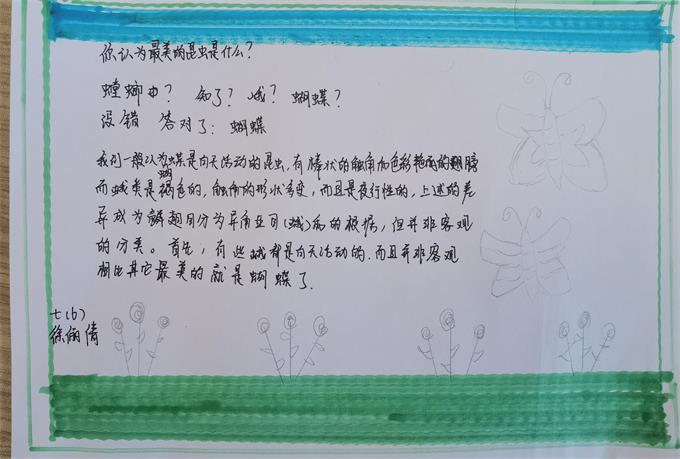 你认为最美的昆虫是什么?
螳螂由? 知了? 蛾? 蝴蝶?
没错 答对了: 蝴蝶
我们一般认为蝴蝶是白天活动的昆虫,有棒状的触角和色彩艳丽的翅膀
而蛾类是褐色的,触角的形状多变,而且是夜行性的,上述的差
异成为鳞翅目分为异角亚目(蛾)的根据,但并非客观
的分类。首先,有些蛾都是白天活动的.而且并非客观
相比其它最美的就是蝴蝶了.
七(6)
徐倩